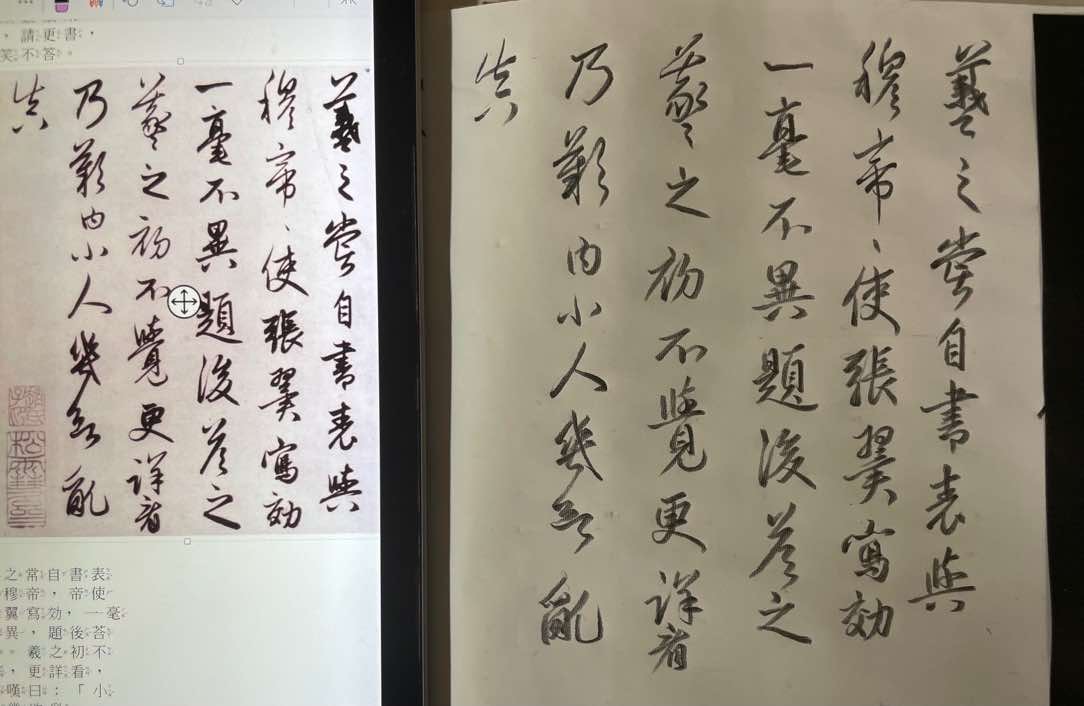 ，請更書，
笑不答。
羲之嘗自書表與
穆帝、使張翼寫効
一毫不異題後答之
羲之初不覺更詳看
乃歎曰小人幾欲亂
真
之常自書表
穆帝，帝使
翼寫効，一毫
異，題後答
。羲之初不
，更詳看，
嘆曰：「小
羲之嘗自書表與
穆帝、使張翼寫効
一毫不異題後答之
羲之初不覺更詳看
乃歎曰小人幾欲亂
真